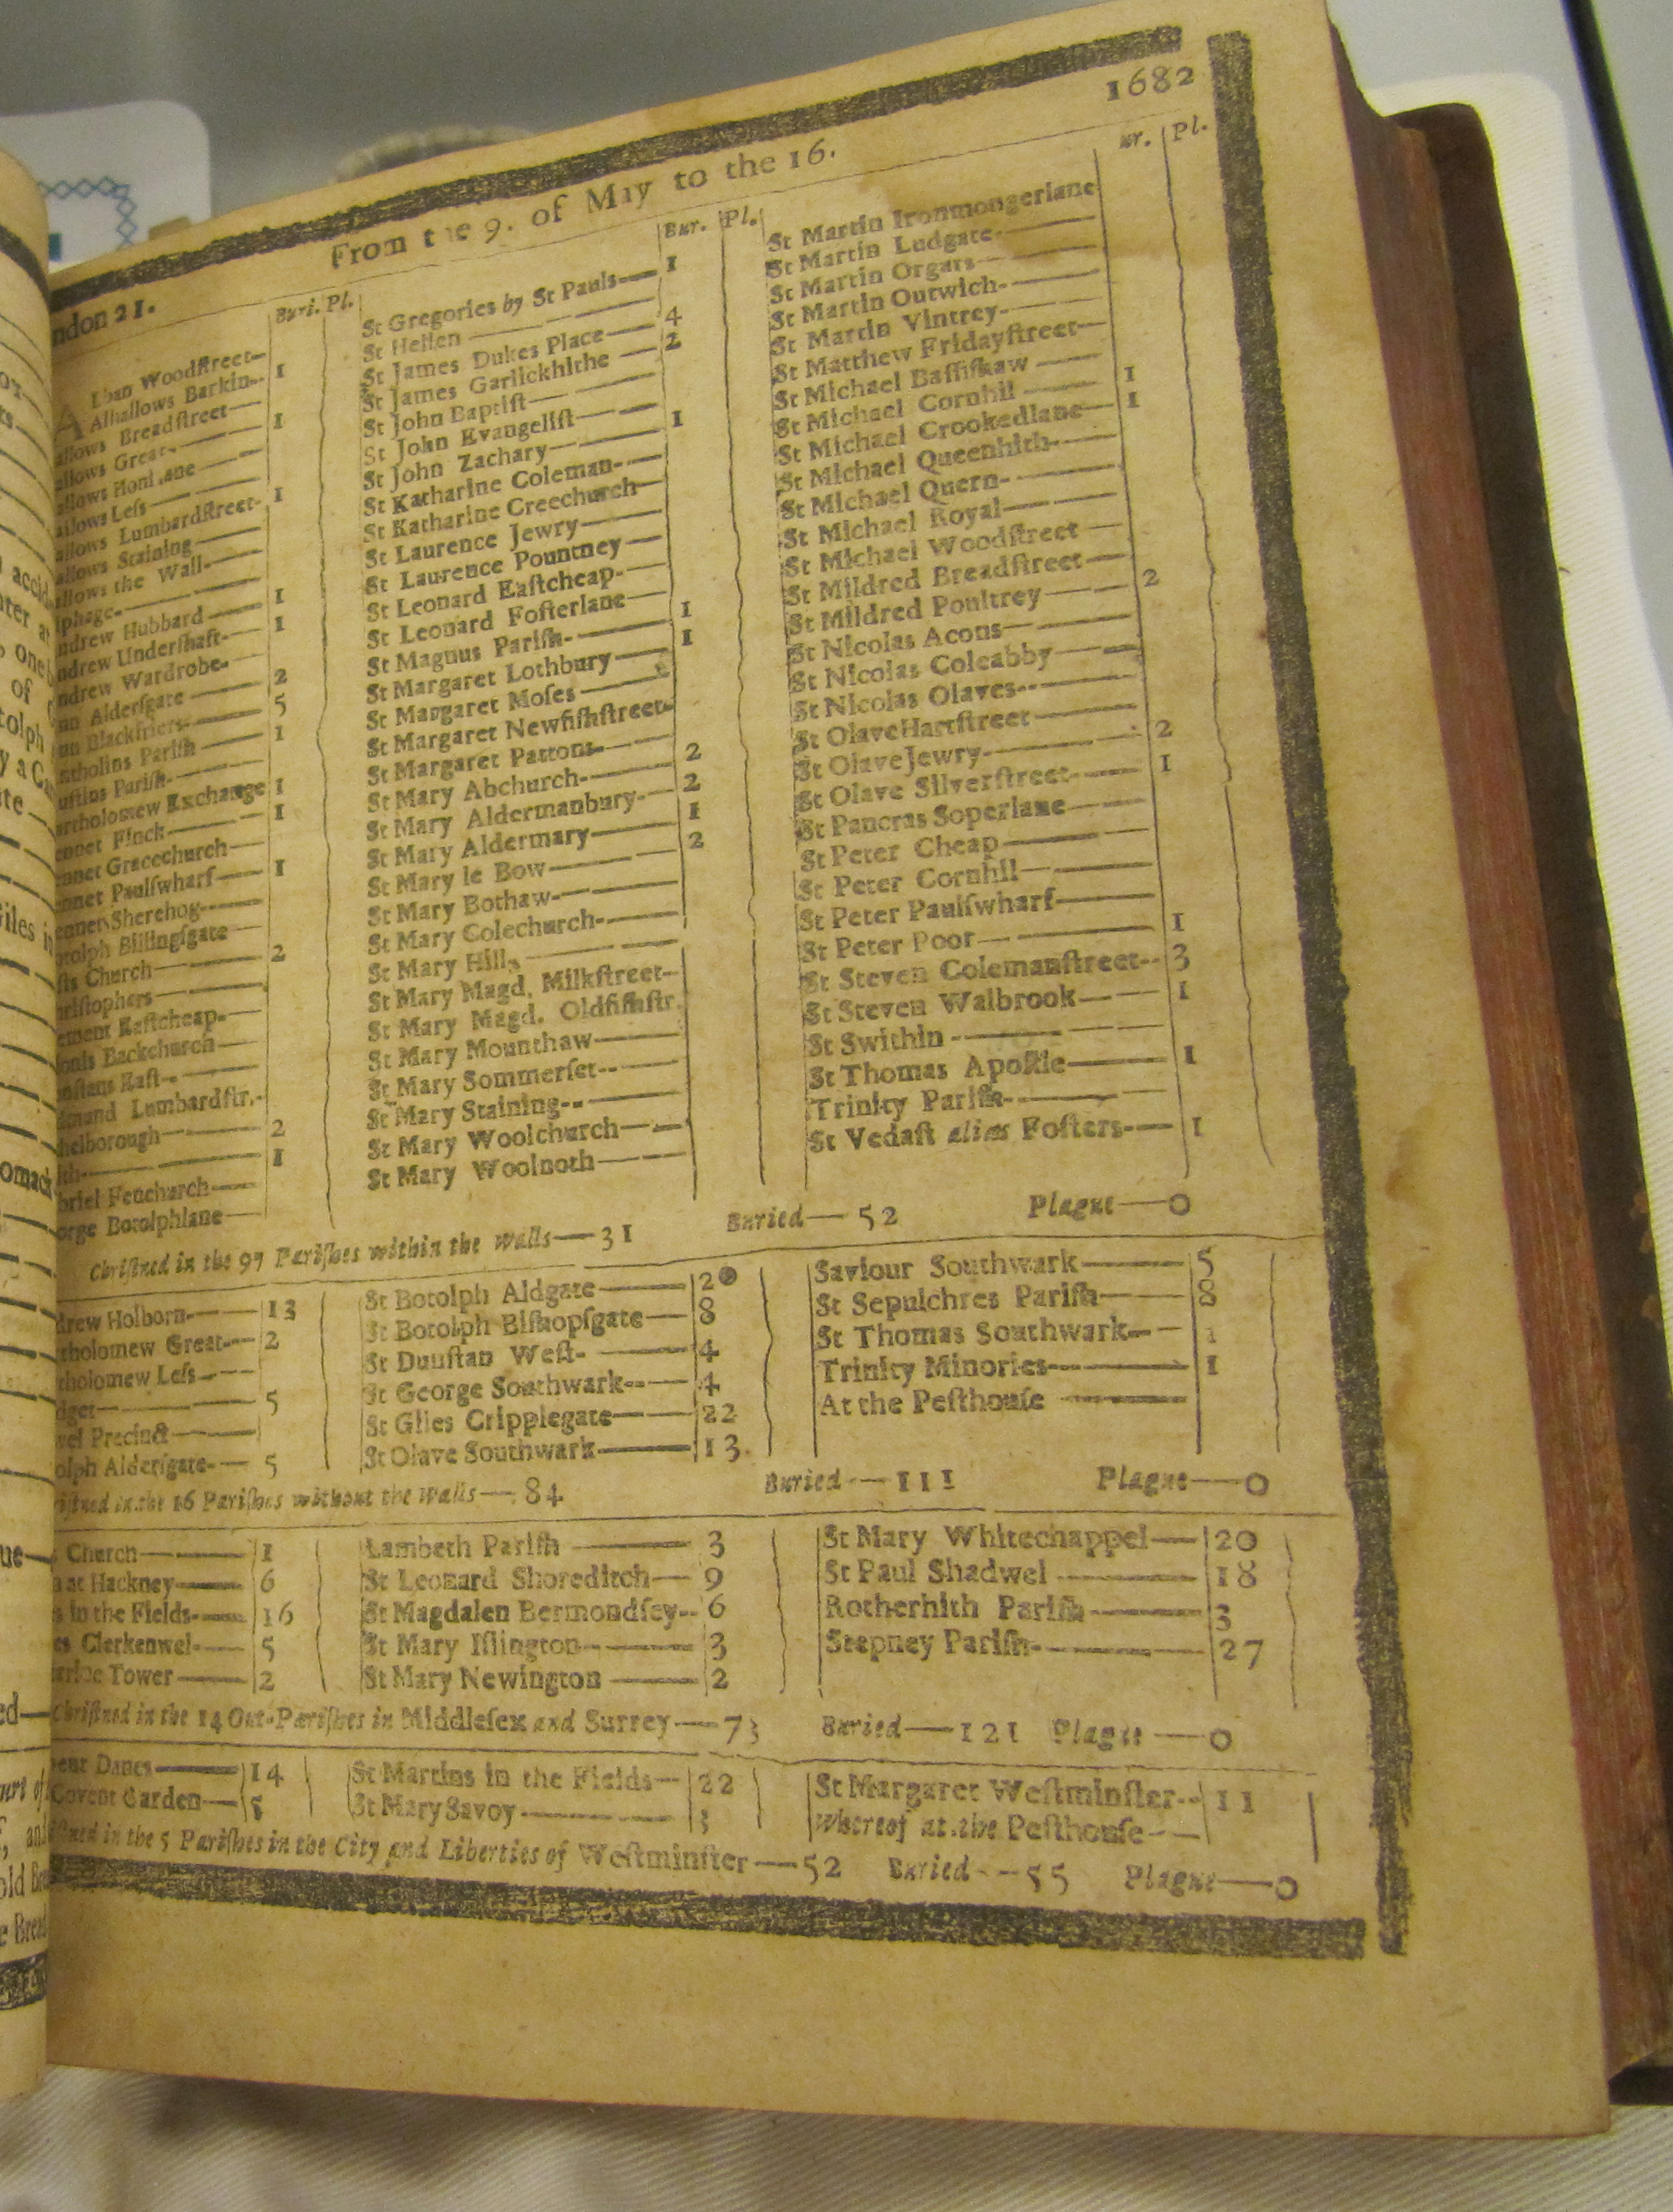 ndon 21. From t e 9. of May to the 16. 1682
Buri. Pl.
Woodſtreet—
Alhallows Barkin-- 1
allows Breadſtreet —
allows Great- — 1
allows Honi ane —
allows Leſs — —
allows Lumbardſtreet- 1
allows Staining —
allows the Wall-
lphage- —
ndrew Hubbard — 1
ndrew Underſhaft- — 1
ndrew Wardrobe-
nn Alderſgate — 2
nn Blackfriers- 5
ntholins Pariſh — 1
uſtins Pariſh- —
artholomew Exchange 1
ennet Finck — 1
ennet Gracechurch —
ennet Paulſwharf — 1
ennet Sherehog- —
otolph Billingſgate —
ſts Church — 2
hriſtophers —
ement Eaſtcheap- —
ionis Backchurch —
unſtans Eaſt-- —
dmund Lumbardſtr.-
helborough — 2
lth — 1
briel Fenchurch —
orge Botolphlane —
Bur. Pl.
St Gregories by St Pauls — 1
St Hellen —
St James Dukes Place — 4
St James Garlickhithe — 2
St John Baptiſt —
St John Evangeliſt —
St John Zachary — 1
St Katharine Coleman- —
St Katharine Creechurch
St Laurence Jewry —
St Laurence Pountney —
St Leonard Eaſtcheap- —
St Leonard Foſterlane —
St Magnus Pariſh- — 1
St Margaret Lothbury — 1
St Margaret Moſes —
St Margaret Newfiſhſtreet-
St Margaret Pattons- —
St Mary Abchurch- — 2
St Mary Aldermanbury- — 2
St Mary Aldermary — 1
St Mary le Bow — 2
St Mary Bothaw- —
St Mary Colechurch- —
St Mary Hill —
St Mary Magd. Milkſtreet —
St Mary Magd. Oldfiſhſtr.
St Mary Mounthaw —
St Mary Sommerſet-- —
St Mary Staining-- —
St Mary Woolchurch —
St Mary Woolnoth —
ur. Pl.
St Martin Ironmongerlane
St Martin Ludgate- —
St Martin Orgars —
St Martin Outwich- —
St Martin Vintrey- —
St Matthew Fridayſtreet —
St Michael Baſſiſhaw —
St Michael Cornhil — 1
St Michael Crookedlane — 1
St Michael Queenhith- —
St Michael Quern- —
St Michael Royal —
St Michael Woodſtreet —
St Mildred Breadſtreet —
St Mildred Poultrey — 2
St Nicolas Acons —
St Nicolas Coleabby —
St Nicolas Olaves-- —
St Olave Hartſtreet —
St Olave Jewry- — 2
St Olave Silverſtreet- — 1
St Pancras Soperlane —
St Peter Cheap —
St Peter Cornhil —
St Peter Paulſwharf —
St Peter Poor — 1
St Steven Colemanſtreet-- 3
St Steven Walbrook — 1
St Swithin —
St Thomas Apoſtle — 1
Trinity Pariſh- —
St Vedaſt alias Foſters- — 1
Chriſtned in the 97 Pariſhes within the walls — 31 Buried — 52 Plague — 0
drew Holborn- — 13
tholomew Great- — 2
tholomew Leſs —
dget — 5
wel Precinct —
olph Alderſgate- — 5
St Botolph Aldgate — 20
St Botolph Biſhopſgate — 8
St Dunſtan Weſt- — 4
St George Southwark-- — 4
St Giles Cripplegate — 22
St Olave Southwark — 13
Saviour Southwark — 5
St Sepulchres Pariſh — 8
St Thomas Southwark- — 1
Trinity Minories — 1
At the Peſthouſe —
riſtned in the 16 Pariſhes without the walls — 84 Buried — 111 Plague — 0
Church — 1
at Hackney — 6
in the Fields- — 16
es Clerkenwel- — 5
arine Tower — 2
Lambeth Pariſh — 3
St Leonard Shoreditch — 9
St Magdalen Bermondſey-- 6
St Mary Iſlington — 3
St Mary Newington — 2
St Mary Whitechappel — 20
St Paul Shadwel — 18
Rotherhith Pariſh — 3
Stepney Pariſh- — 27
Chriſtned in the 14 Out-Pariſhes in Middleſex and Surrey — 73 Buried — 121 Plague — 0
ent Danes — 14
Covent Garden — 5
St Martins in the Fields — 22
St Mary Savoy — 3
St Margaret Weſtminſter-- 11
Whereof at the Peſthouſe-- —
iſtned in the 5 Pariſhes in the City and Liberties of Weſtminſter — 52 Buried — 55 Plague — 0